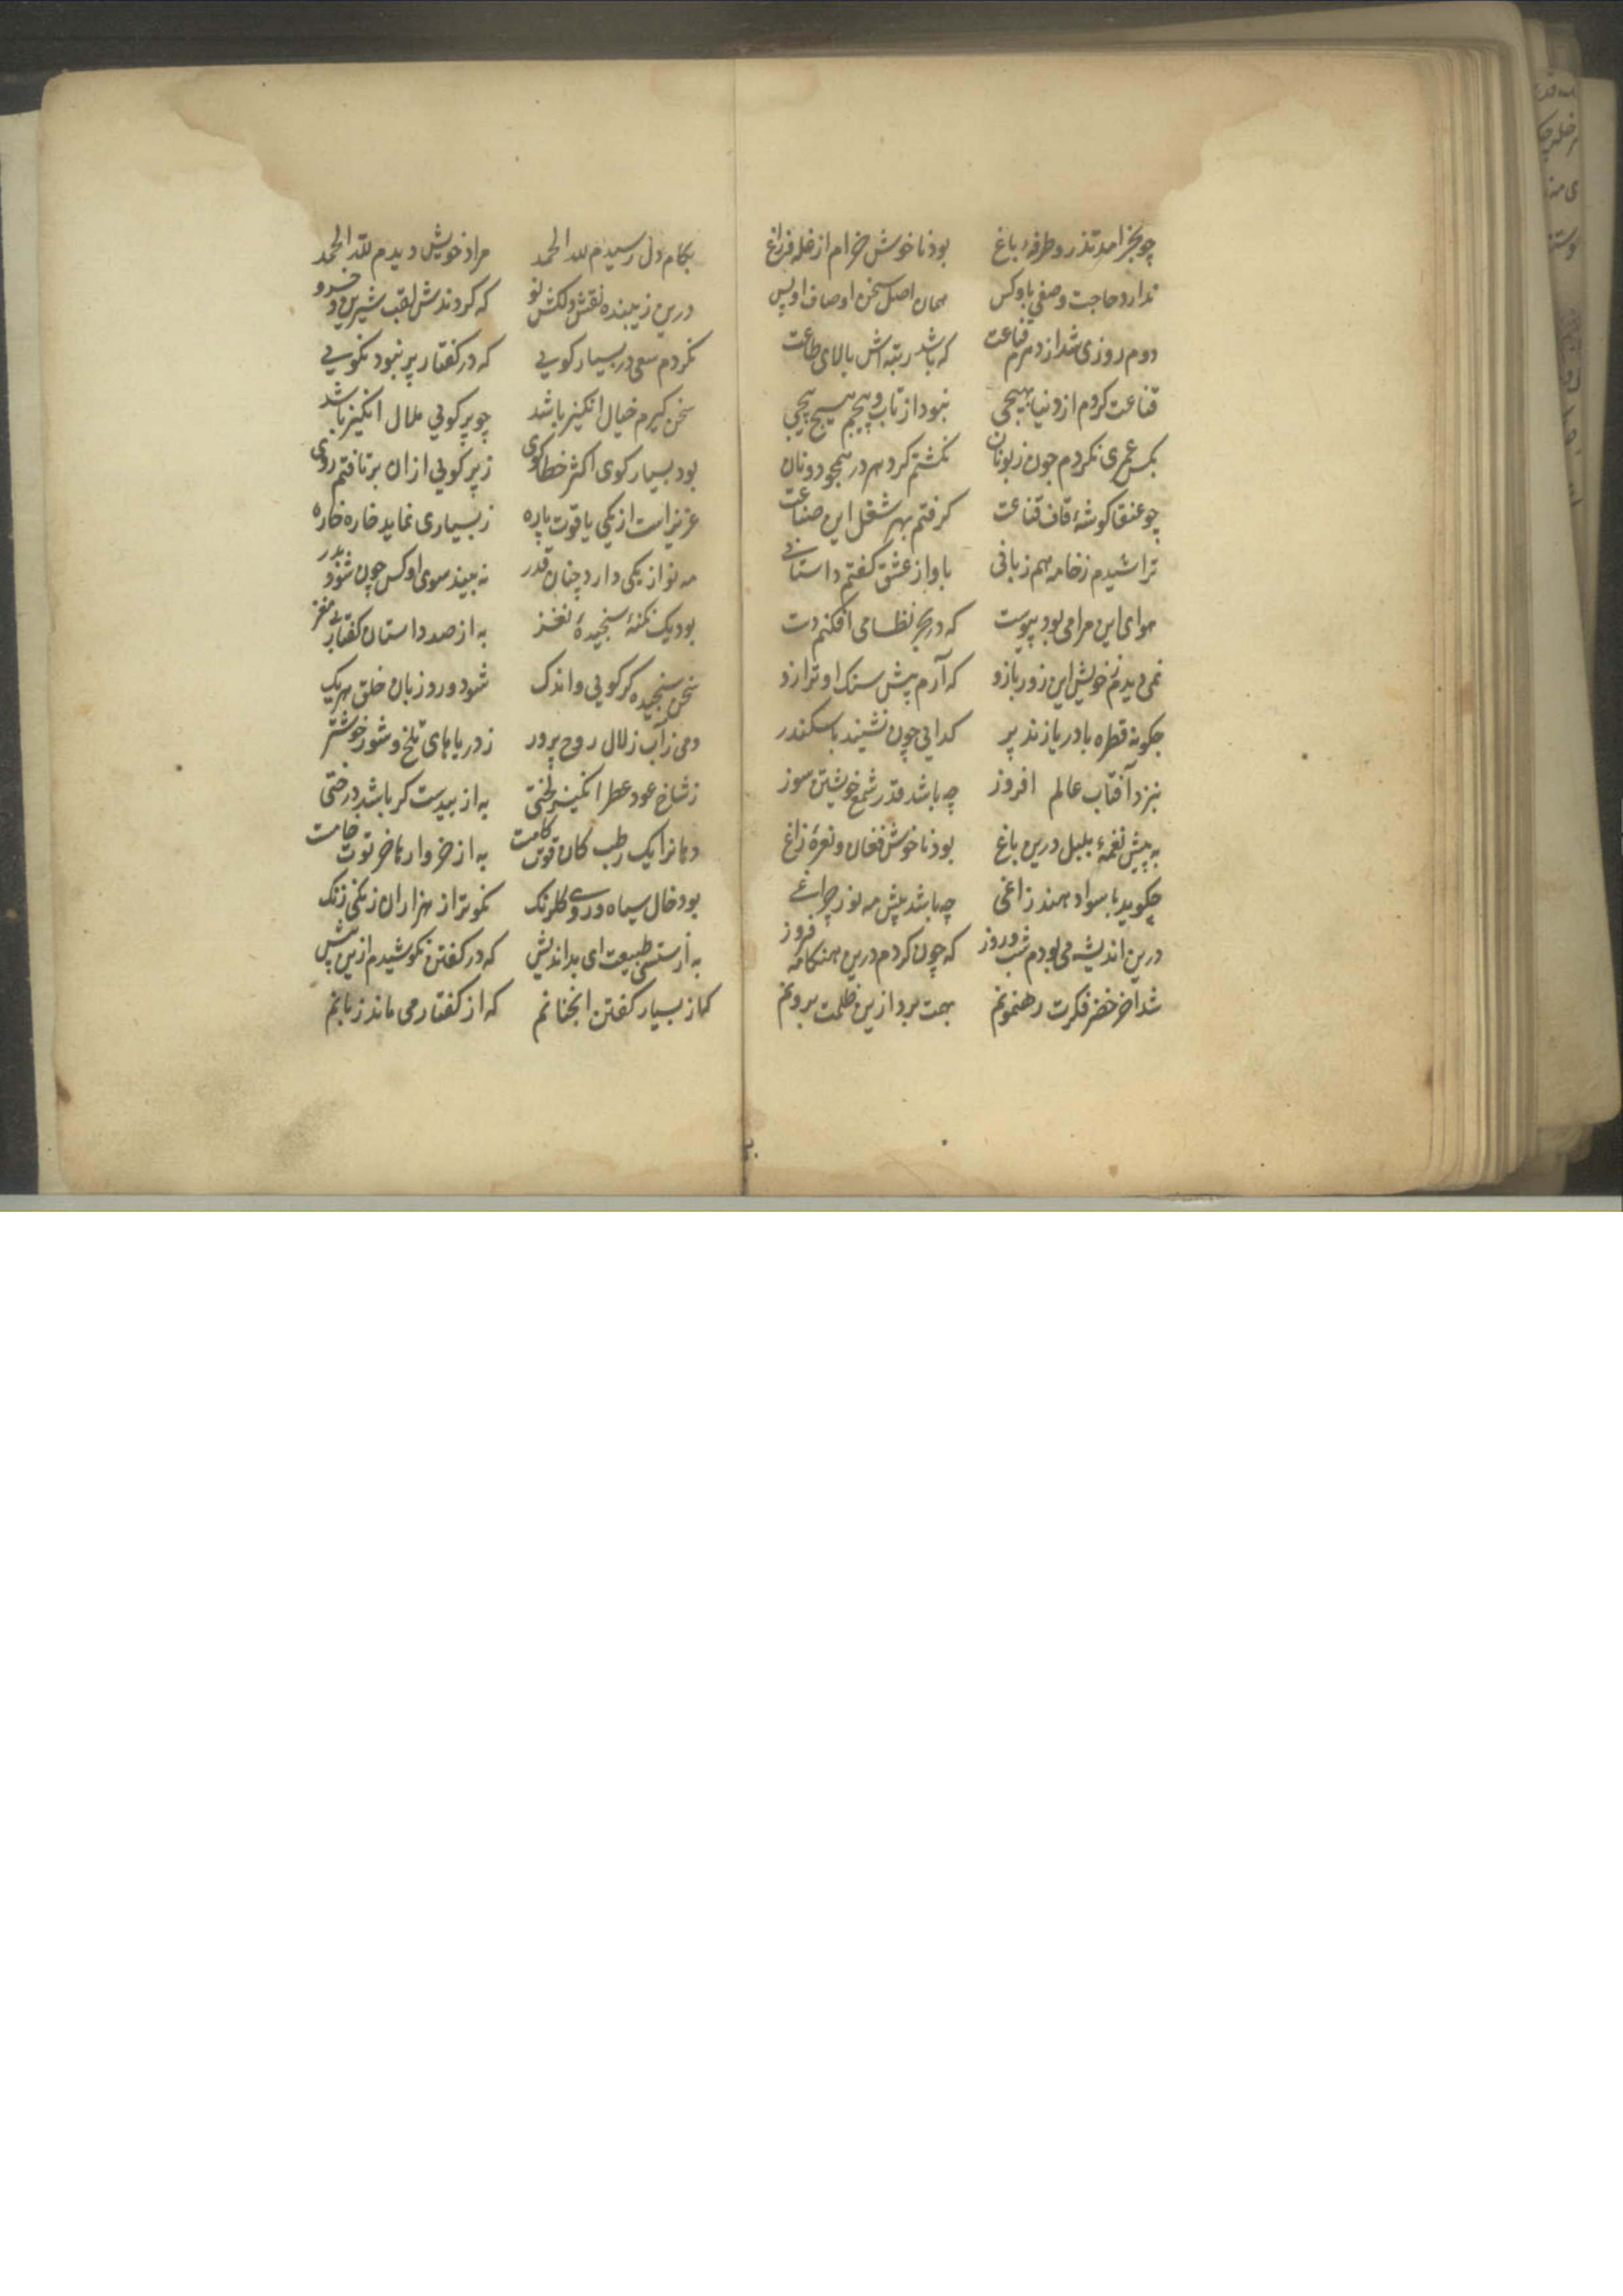 چو بخرامد تذرو طرفهٔ باغ بود ناخوش خرام از غله فرزاغ
ندارد حاجت وصفی باو کس همان اصل سخن اوصاف او بس
دوم روزی شد از دهرم قناعت که باشد رتبه اش بالای طاعت
قناعت کردم از دنیا بهیچی نبود از تاب و پیچم هیچ پیچی
بکس عمری نکردم چون زبونان نکشتم کرد هر در همچو دونان
چو عنقا کوشهٔ قاف قناعت کرفتم بهر شغل این صناعت
تراشیدم زخامه هم زبانی باواز عشق کفتم داستانی
هوای این مرامی بود پیوست که در بحر نظامی افکنم دست
نمی دیدم زخویش این زور بازو که آرم پیش سنک او ترازو
چکونه قطره با دریا زند پر کدایی چون نشیند با سکندر
بنزد آفتاب عالم افروز چه باشد قدر شمع خویشتن سوز
به پیش نغمهٔ بلبل درین باغ بود ناخوش فغان و نعرهٔ زاغ
چکوید با سواد هند زاغی چه باشد پیش مه نور چراغی
درین اندیشه می بودم شب و روز که چون کردم درین هنکامه فروز
شد آخر خضر فکرت رهنمونم بهمت برد ازین ظلمت برونم
بکام دل رسیدم لله الحمد مراد خویش دیدم لله الحمد
درین زیبنده نقش دلکش نو که کردندش لقب شیرین و خسرو
نکردم سعی در بسیار کویی که در کفتار پر نبود نکویی
سخن کیرم خیال انکیز باشد چو پر کویی ملال انکیز باشد
بود بسیار کوی اکثر خطا کوی ز پر کویی ازان برتافتم روی
عزیز است از یکی یاقوت پاره ز بسیاری نماید خاره خاره
مه نو از یکی دارد چنان قدر نه بیند سوی او کس چون شود بدر
بود یک نکتهٔ سنجیدهٔ نغز به از صد داستان کفتار بی مغز
سخن سنجیده کر کویی و اندک شود ورد زبان خلق هر یک
دمی زآب زلال روح پرور ز دریاهای تلخ و شور خوشتر
زشاخ عود عطر انکیز لختی به از بیدست کر باشد درختی
دهانرا یک رطب کان قوت کامت به از خروارها خرتوت خامت
بود خال سیاه و روی کلرنک نکوتر از هزاران زنکی زنک
به از سستی طبیعت ای بداندیش که در کفتن نکوشیدم ازین پیش
کم از بسیار کفتن آنچنانم که از کفتار می ماند زبانم